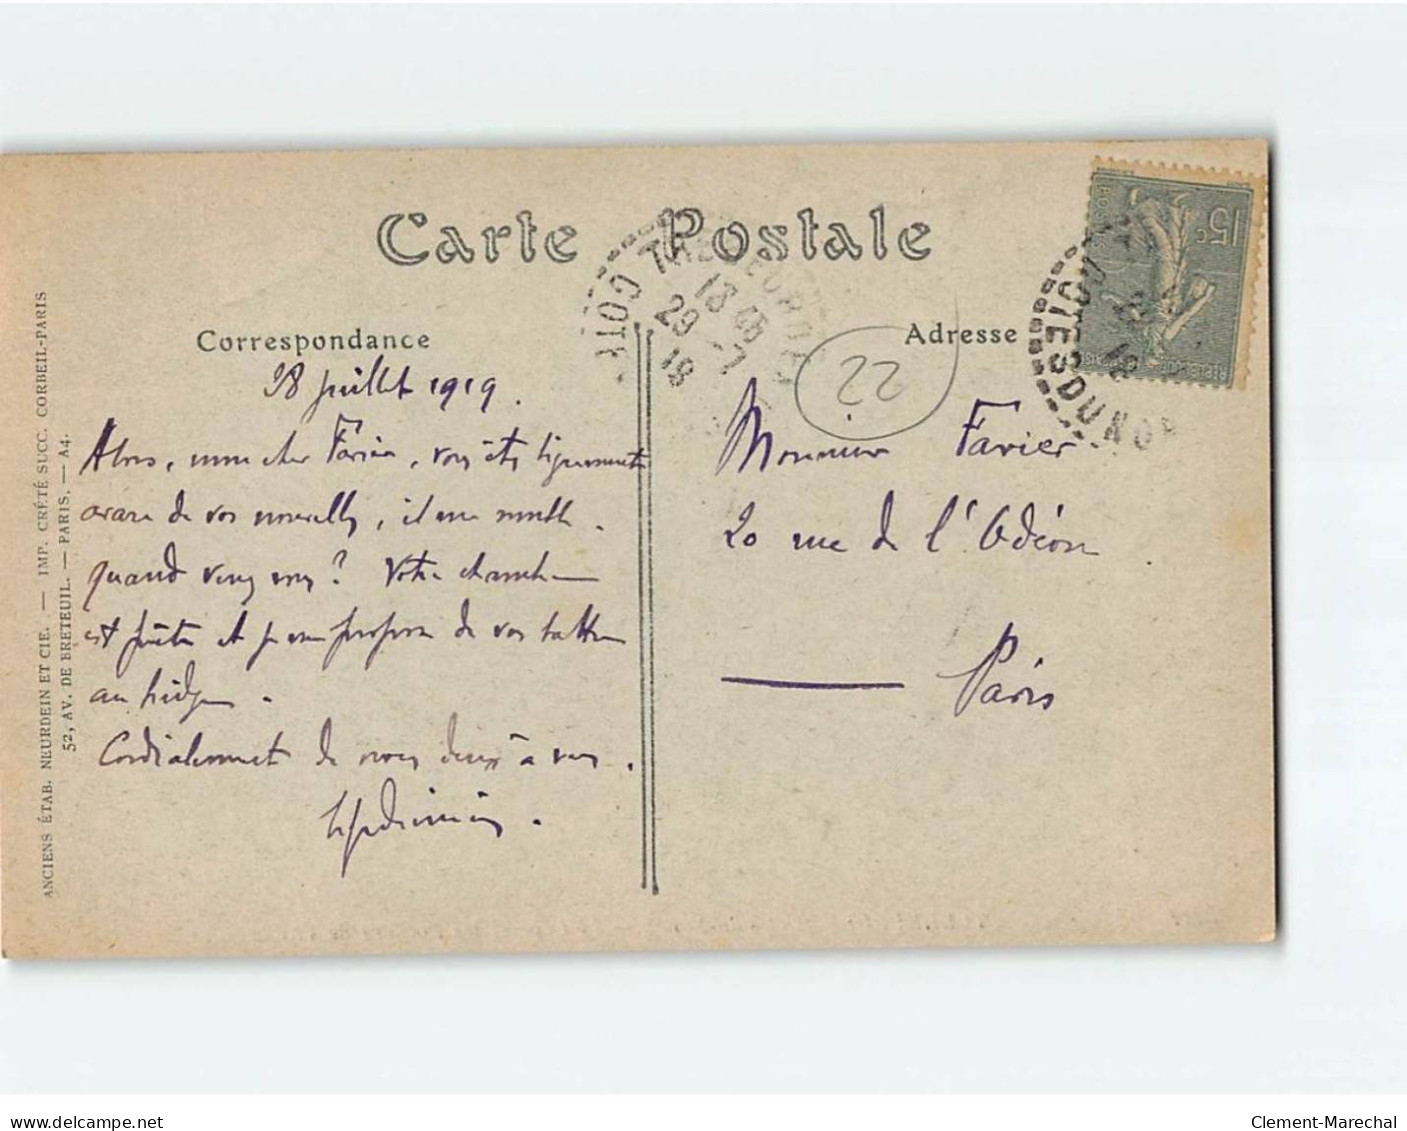 Carte Postale
Correspondance
28 juillet 1919.
Alors, mon cher Favier, vous êtes
avare de vos nouvelles, il me semble.
quand venez vous? Votre chambre
est prête et je me propose de vous battre
au bridge.
Cordialement de nous deux à vous.
Adresse
22
Monsieur Favier
20 rue de l'Odéon
Paris
TREBEURDEN
18 45
29 -7
19
COTES DU NORD
15c
POSTES
ANCIENS ÉTAB. NEURDEIN ET CIE. — IMP. CRÉTÉ SUCC. CORBEIL-PARIS
52, AV. DE BRETEUIL. — PARIS. — A4.
www.delcampe.net
Clement-Marechal